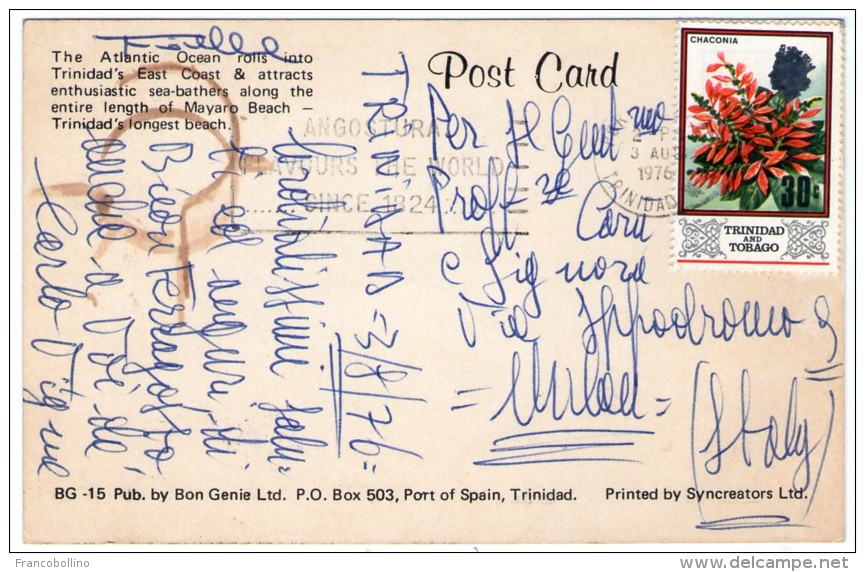 The Atlantic Ocean rolls into
Trinidad's East Coast & attracts
enthusiastic sea-bathers along the
entire length of Mayaro Beach –
Trinidad's longest beach.
Post Card
CHACONIA
30c
TRINIDAD
AND
TOBAGO
ANGOSTURA
FLAVOURS THE WORLD
SINCE 1824
3 AU
1976
TRINIDAD
TRINIDAD = 3/8/76 =
Cordialissimi salu-
ti ed auguri di
Buon Ferragosto
anche a Voi da
Carlo
Per Il Gent mo
Prof
e Signora
Via Ippodromo 9
= Milan =
(Italy)
BG -15 Pub. by Bon Genie Ltd. P.O. Box 503, Port of Spain, Trinidad. Printed by Syncreators Ltd.
Francobollino
delcampe.net